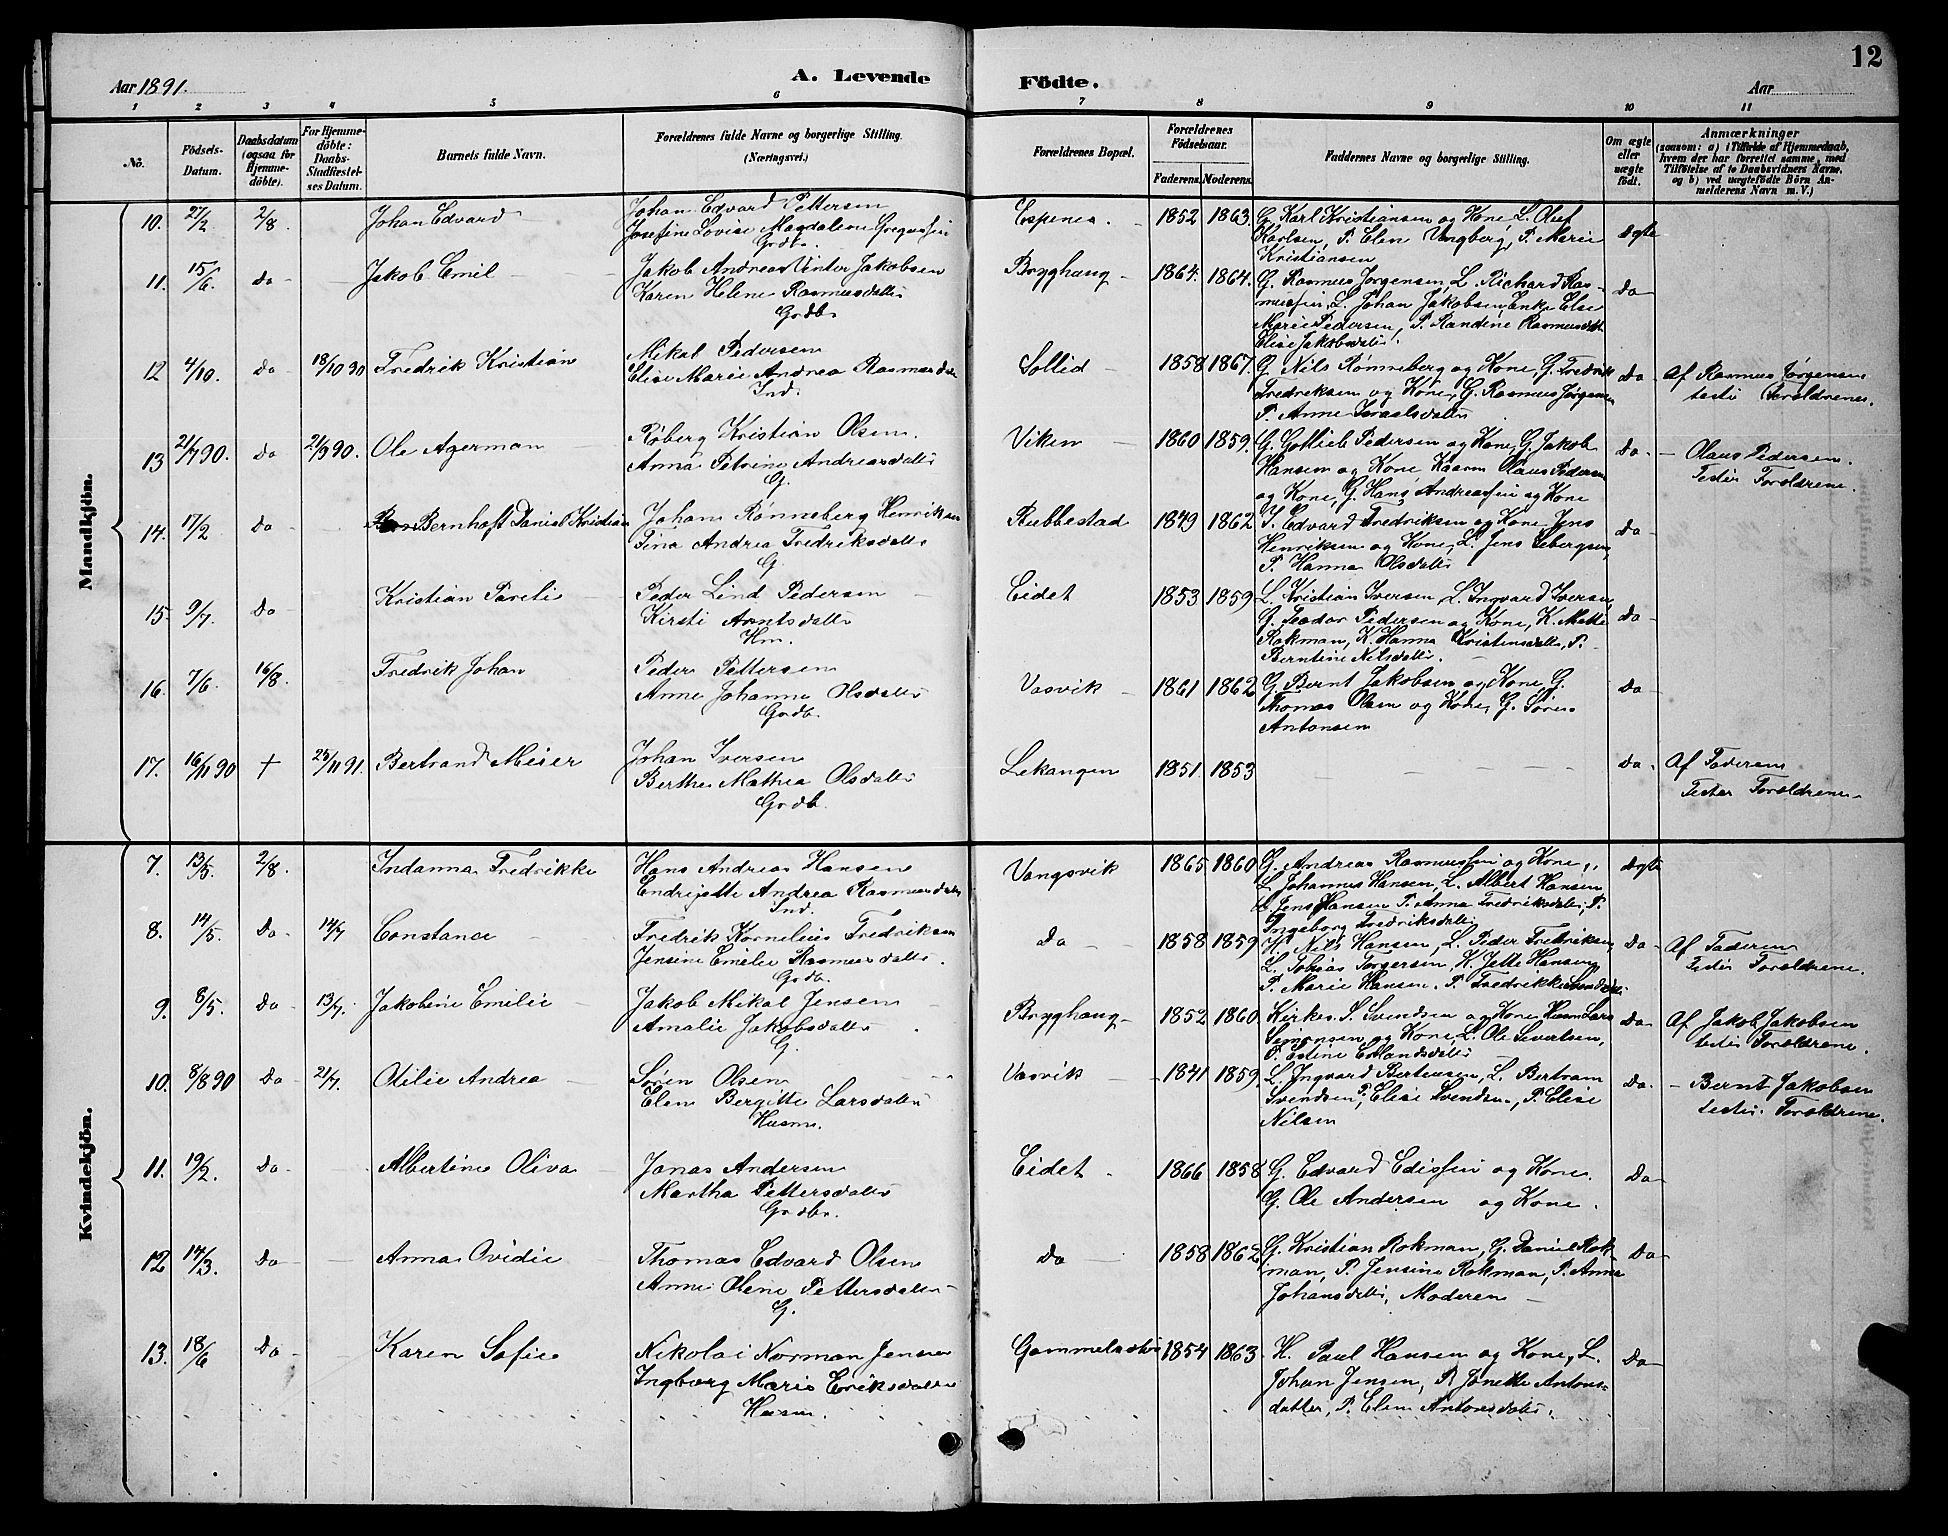 12
Aar 1891.
A. Levende
Födte.
Aar
1 2 3 4 5 6 7 8 9 10 11
No.
Födsels-
Datum.
Daabsdatum
(ogsaa for
Hjemme-
döbte).
For Hjemme-
döbte:
Daabs-
Stadfæstel-
ses Datum.
Barnets fulde Navn.
Forældrenes fulde Navne og borgerlige Stilling.
(Næringsvei.)
Forældrenes Bopæl.
Forældrenes
Födselsaar.
Faderens. Moderens.
Faddernes Navne og borgerlige Stilling.
Om ægte
eller
uægte
födt.
Anmærkninger
(saasom: a) i Tilfælde af Hjemmedaab,
hvem der har forrettet samme, med
Tilföielse af to Daabsvidners Navne,
og b) ved uægtefödte Börn An-
melderens Navn m. V.)
Mandkjön.
10. 27/2 2/8. Johan Edvard
Johan Edvard Pettersen
Josefine Lovise Magdalene
Grdbr.
Espenes. 1852 1863.
G. Karl Kristiansen og Kone, L. Oluf
Karlsen, P. Elen Vangberg, P. Marie
Kristiansen
Ægte
11. 15/6. Do Jakob Emil
Jakob Andreas Vinter Jakobsen
Karen Helene Rasmusdatter
Grdbr
Brøghaug 1864. 1864.
G. Rasmus Jørgensen, L. Richard Ras-
mussen, L. Johan Jakobsen, Enke Else
Marie Pedersen, P. Randine Rasmusdtr
Elise Jakobsdatter.
Do
12 4/10. Do 18/10 90 Fredrik Kristian
Mikal Pedersen
Elise Marie Andrea Rasmusdtr
Ind.
Sollid 1858 1867.
G. Nils Rønneberg og Kone, G. Fredrik
Fredriksen og Kone, G. Rasmus Jørgensen
P. Anne Israelsdatter
Do
Af Rasmus Jørgensen
testes Foreldrene.
13 21/7 90. Do 21/9 90. Ole Agerman
Røberg Kristian Olsen.
Anna Petrine Andreasdatter
G.
Viken 1860 1859.
G. Gotlieb Pedersen og Kone, G. Jakob
Hansen og Kone, Olaus Pedersen
og Kone, G. Hans Andreassen og Kone
Do
Olaus Pedersen.
Testes Foreldrene.
14. 17/2 Do Bernhoft Daniel Kristian
Johan Rønneberg Henriksen
Tina Andrea Fredriksdatter
G.
Rubbestad 1849 1862
Edvard Fredriksen og Kone, Jens
Henriksen og Kone, L. Jens
P. Hanna Olsdatter
Do
15. 9/7. Do Kristian Pareli
Peder Lind Pedersen
Kirsti Arntsdatter
Hm.
Eidet 1853 1859
L. Kristian Iversen, L. Ingvard Iversen,
G. Teodor Pedersen og Kone, K. Mette
Rokman, K. Hanna Kristensdatter, P.
Berntine Nilsdatter.
Do
16. 7/6. 16/8. Fredrik Johan
Peder Pettersen
Anne Johanne Olsdatter
Grdb.
Vasvik 1861 1862
G. Bernt Jakobsen og Kone, G.
Thomas Olsen og Kone, G. Søren
Antonsen
Do
17. 16/11 90 + 25/11 91. Bertrand Meier
Johan Iversen
Berthe Mathea Olsdatter
Grdb.
Lekangen 1851 1853
Do.
Af Faderen
Testes Foreldrene
Kvindekjön.
7. 13/5. 2/8. Indanna Fredrikke
Hans Andreas Hansen
Endrijette Andrea Rasmusdtr
Ind.
Vangsvik 1865 1860
G. Andreas Rasmussen og Kone,
L. Johannes Hansen, L. Albert Hansen,
L. Jens Hansen P. Anna Fredriksdatter, P.
Ingeborg Fredriksdatter
Ægte
8. 14/5. Do 14/7 Constance
Fredrik Kornelius Fredriksen
Jensine Emelie Rasmusdatter.
Grdb.
Do 1858 1859
H. Nils Hansen, L. Peder Fredriksen,
L. Tobias Torgersen, K. Jette Hansen,
P. Marie Hansen, P. Fredrikke
Do
Af Faderen
Testes Foreldrene.
9. 8/5. Do 13/7. Jakobine Emilie
Jakob Mikal Jensen
Amalie Jakobsdatter
G.
Brøghaug 1852 1860
Kirkes. S. Svendsen og Kone, Husm Lars
Simonsen og Kone, L. Ole Sivertsen,
P. Estine Erlandsdatter
Do
Af Jakob Jakobsen
testes Foreldrene.
10. 8/8 90 Do 21/7. Otilie Andrea
Søren Olsen
Elen Bergitte Larsdatter
Husm.
Vasvik 1841 1859
L. Ingvard Berteusen, L. Bertram
Svendsen, P. Elise Svendsen, P. Elise
Nilsen
Do.
Bernt Jakobsen
testes. Foreldrene.
11. 19/2. Do Albertine Oliva
Jonas Andersen
Martha Pettersdatter
Grdbr.
Eidet 1866 1858
G. Edvard Edissen og Kone.
G. Ole Andersen og Kone.
Do
12 14/3. Do Anna Ovidie
Thomas Edvard Olsen
Anne Oline Pettersdatter
G.
Do 1858 1862
G. Kristian Rokman, G. Daniel Rok-
man, P. Jensine Rokman, P. Anna
Johansdatter, Moderen
Do
13. 18/6 Do Karen Sofie
Nikolai Norman Jensen
Ingborg Marie Eriksdatter
Husm.
1854 1863
H. Paul Hansen og Kone, L.
Johan Jensen, P. Jonette Antons-
datter, P. Elen Antonsdatter.
Do